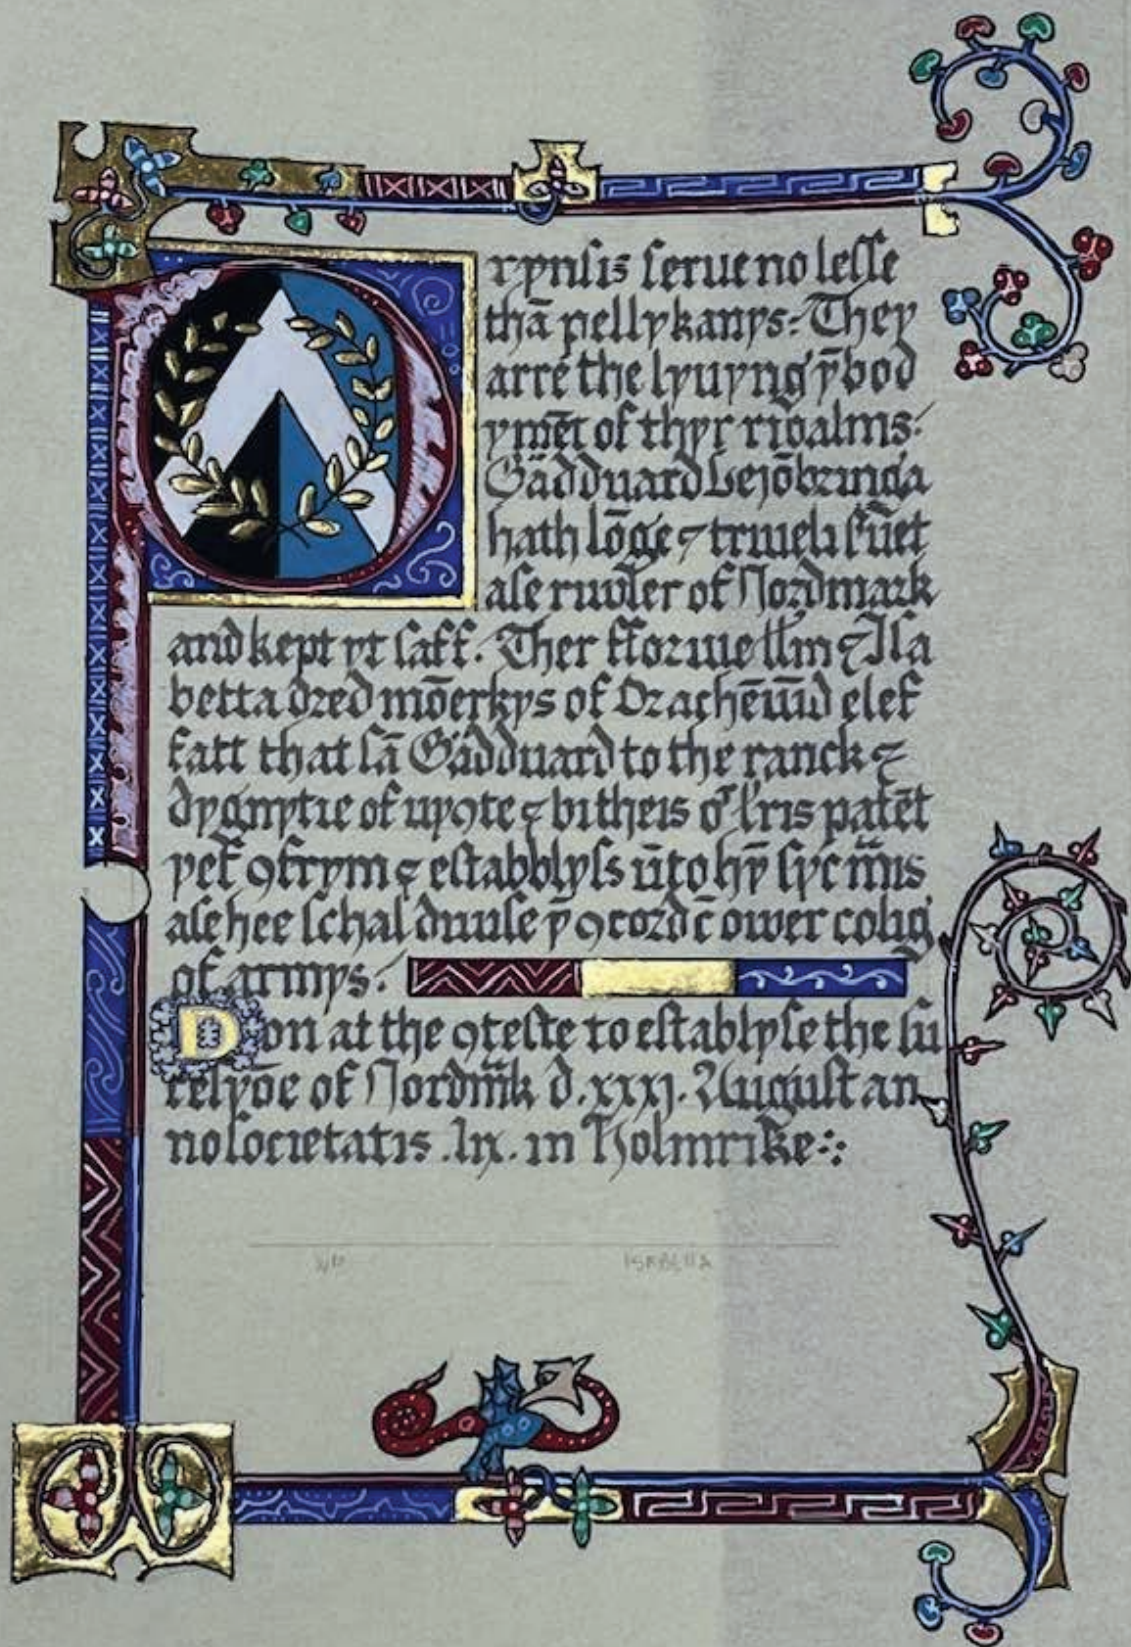 Prynsis serue no lesse
thā pellykanys. They
arre the lyuyng ȳbod
ymēt of thyr rioalms:
Gadduard
hath lōge ⁊ truueli suēt
ase ruwler of Nordmark
and kept yt saff. Ther ffor we ⁊ Isa
betta dred mōerkys of Drachēwd elef
fatt that sā Gadduard to the ranck ⁊
dygnytie of ⁊ bi theis oʳ lris patēt
yef ꝯfrym ⁊ establyss ūto hȳ syc
ase hee schal duuise ȳ ꝯcordc̄ ower colig
of armys.
Don at the ꝯteste to establyse the su
of Nordm̄k d. xxxj. August an
no societatis .lx. in Holmrike
ISABELLA